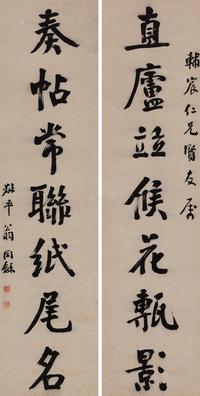 輔宸仁兄賢友屬
直廬竝候花甎影
奏帖常聯紙尾名
叔平翁同龢